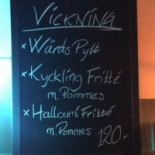 VICKNING
× Wärds Pytt
× Kyckling Fritté
m. Pommes
× Halloumi Fritté
m. Pommes 120.-